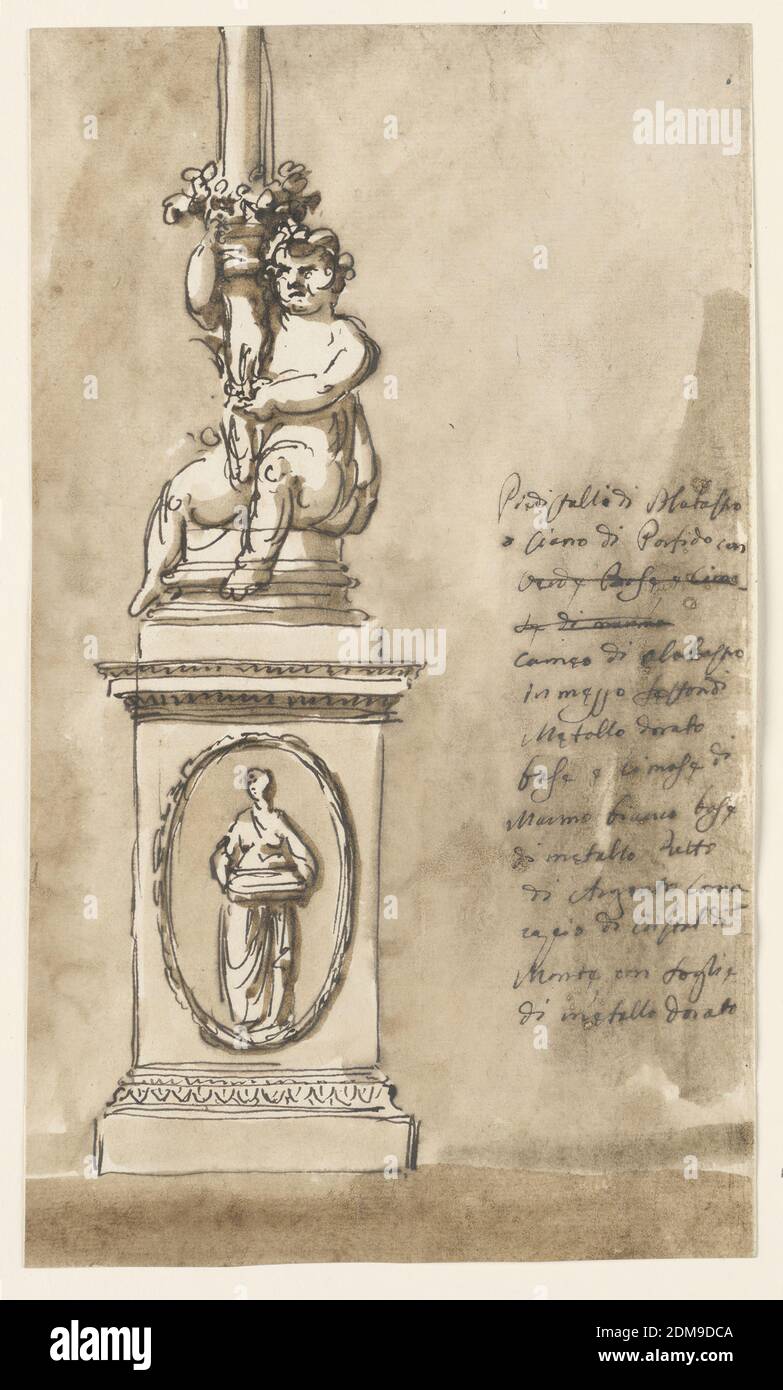 alamy
Piedistalli di Alabastro
o siano di Porfido con
Verde Base e Cima-
se di marmo
cameo di alabastro
in mezzo
Metallo dorato
base e cimase di
Marmo bianco base
di metallo Putto
di Argento
di cristal di
Monte con foglie
di metallo dorato
alamy
Image ID: 2DM9DCA
www.alamy.com